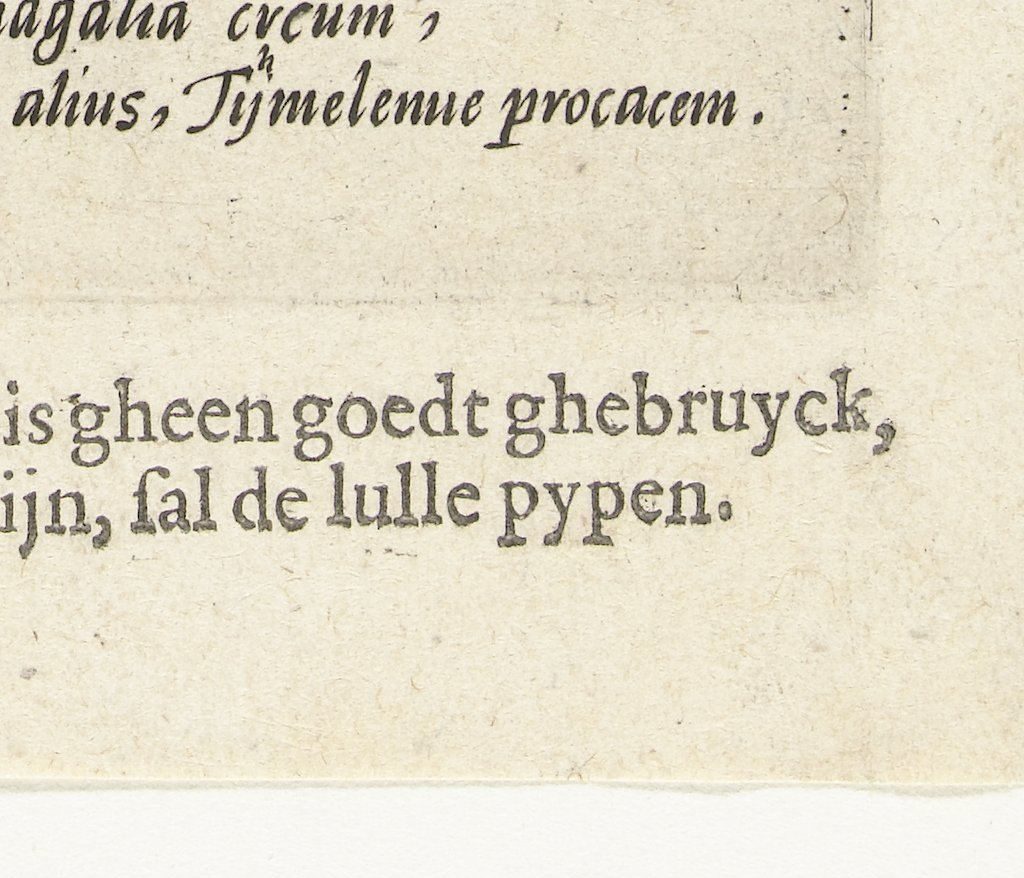 magalia crcum,
alius, Tÿhmelenue procacem.
is gheen goedt ghebruyck,
ijn, ſal de lulle pypen.